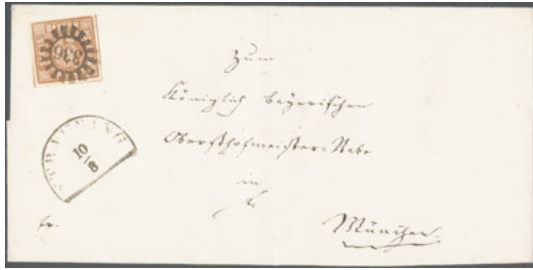 336
Zum
Königlich Bayerischen
Obersthofmeister-Stabe
in
München.
10
/8
fr.